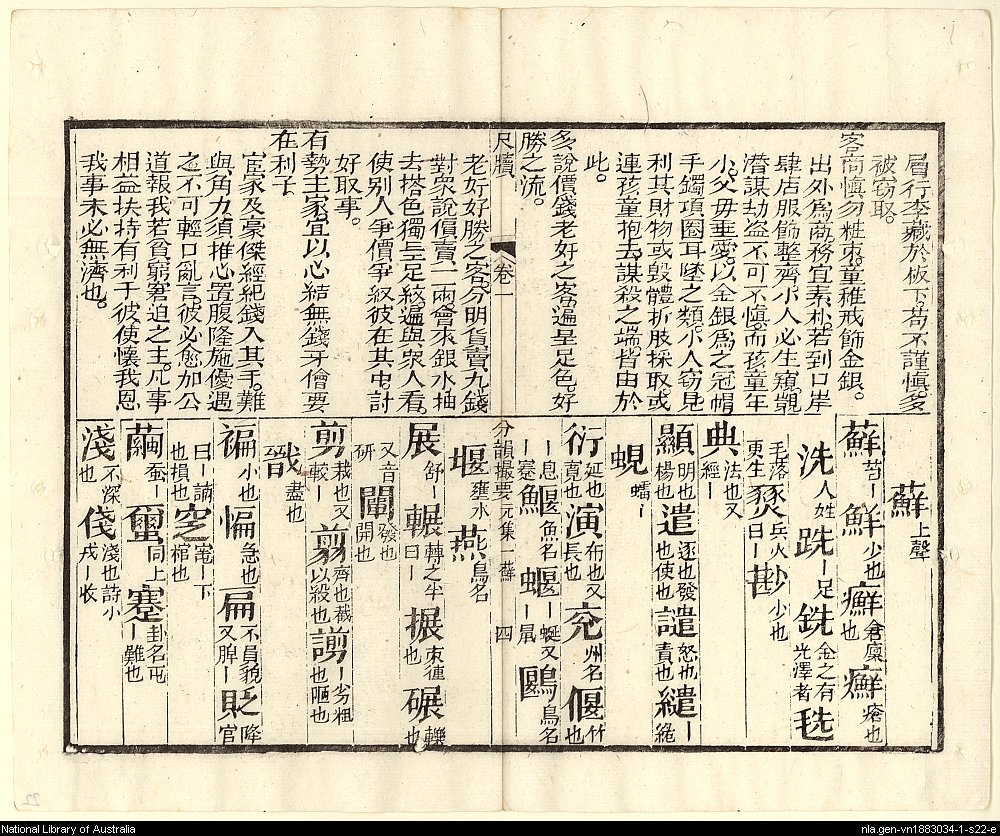 層行李藏於板下苟不謹慎多
被竊取。
客商慎勿粧束童稚戒飾金銀。
出外為商務宜素朴若到口岸
肆店服飾整齊小人必生窺覬
潛謀劫盜不可不慎而孩童年
小父母垂愛以金銀為之冠帽
手鐲項圈耳墜之類小人窃見
利其財物或毀體折肢採取或
連孩童抱去謀殺之端皆由於
此。
多說價錢老好之客遍呈足色好
勝之流。
尺牘
卷一
老好好勝之客分明貨賣九錢
對眾說價賣一兩會來銀水抽
去搭色獨呈足紋遍與眾人看
使別人爭價爭紋彼在其中討
好取事。
有勢主家宜以心結無錢牙儈要
在利予
宦家及豪傑經紀錢入其手難
與角力須推心置腹隆施優遇
之不可輕口亂言彼必愈加公
道報我若貧窮窘迫之主凡事
相益扶持有利于彼使懷我恩
我事未必無濟也。
蘚上聲
蘚苔〡鮮少也癬倉廩也癬瘡也
洗人姓跣〡足銑金之有光澤者毨
毛落更生燹兵火曰〡尠少也
典法也又經〡
顯明也楊也遣逐也發也使也譴怒也責也繾〡綣
蜆蠕〡
衍延也寬也演布也又長也兗州名偃仆也
〡息〡蹇鰋魚名蝘〡蜓又〡鼠鶠鳥名
分韻撮要元集一蘚
四
堰壅水燕鳥名
展舒〡輾轉之半曰〡搌束縛也碾轢也
又音研闡發也開也
剪裁也又較〡翦齊也截以殺也謭〡劣粗也陋也
戩盡也
褊小也惼急也扁不員貌又脾〡貶降官
曰〡謫也損也窆窀〡下棺也
繭蚕〡𧝓同上蹇卦名屯〡難也
淺不深也俴淺也詩小戎〡收
National Library of Australia
nla.gen-vn1883034-1-s22-e